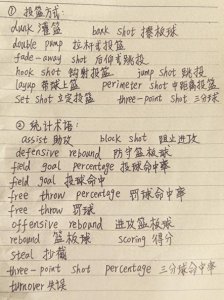 ① 投篮方式
dunk 灌篮 bank shot 擦板球
double pump 拉杆式投篮
fade-away shot 后仰式跳投
hook shot 钩射投篮 jump shot 跳投
layup 带球上篮 perimeter shot 中距离投篮
set shot 立定投篮 three-point shot 三分球
② 统计术语:
assist 助攻 block shot 阻止进攻
defensive rebound 防守篮板球
field goal percentage 投球命中率
field goal 投球命中
free throw percentage 罚球命中率
free throw 罚球
offensive rebound 进攻篮板球
rebound 篮板球 scoring 得分
steal 抄截
three-point shot percentage 三分球命中率
turnover 失误